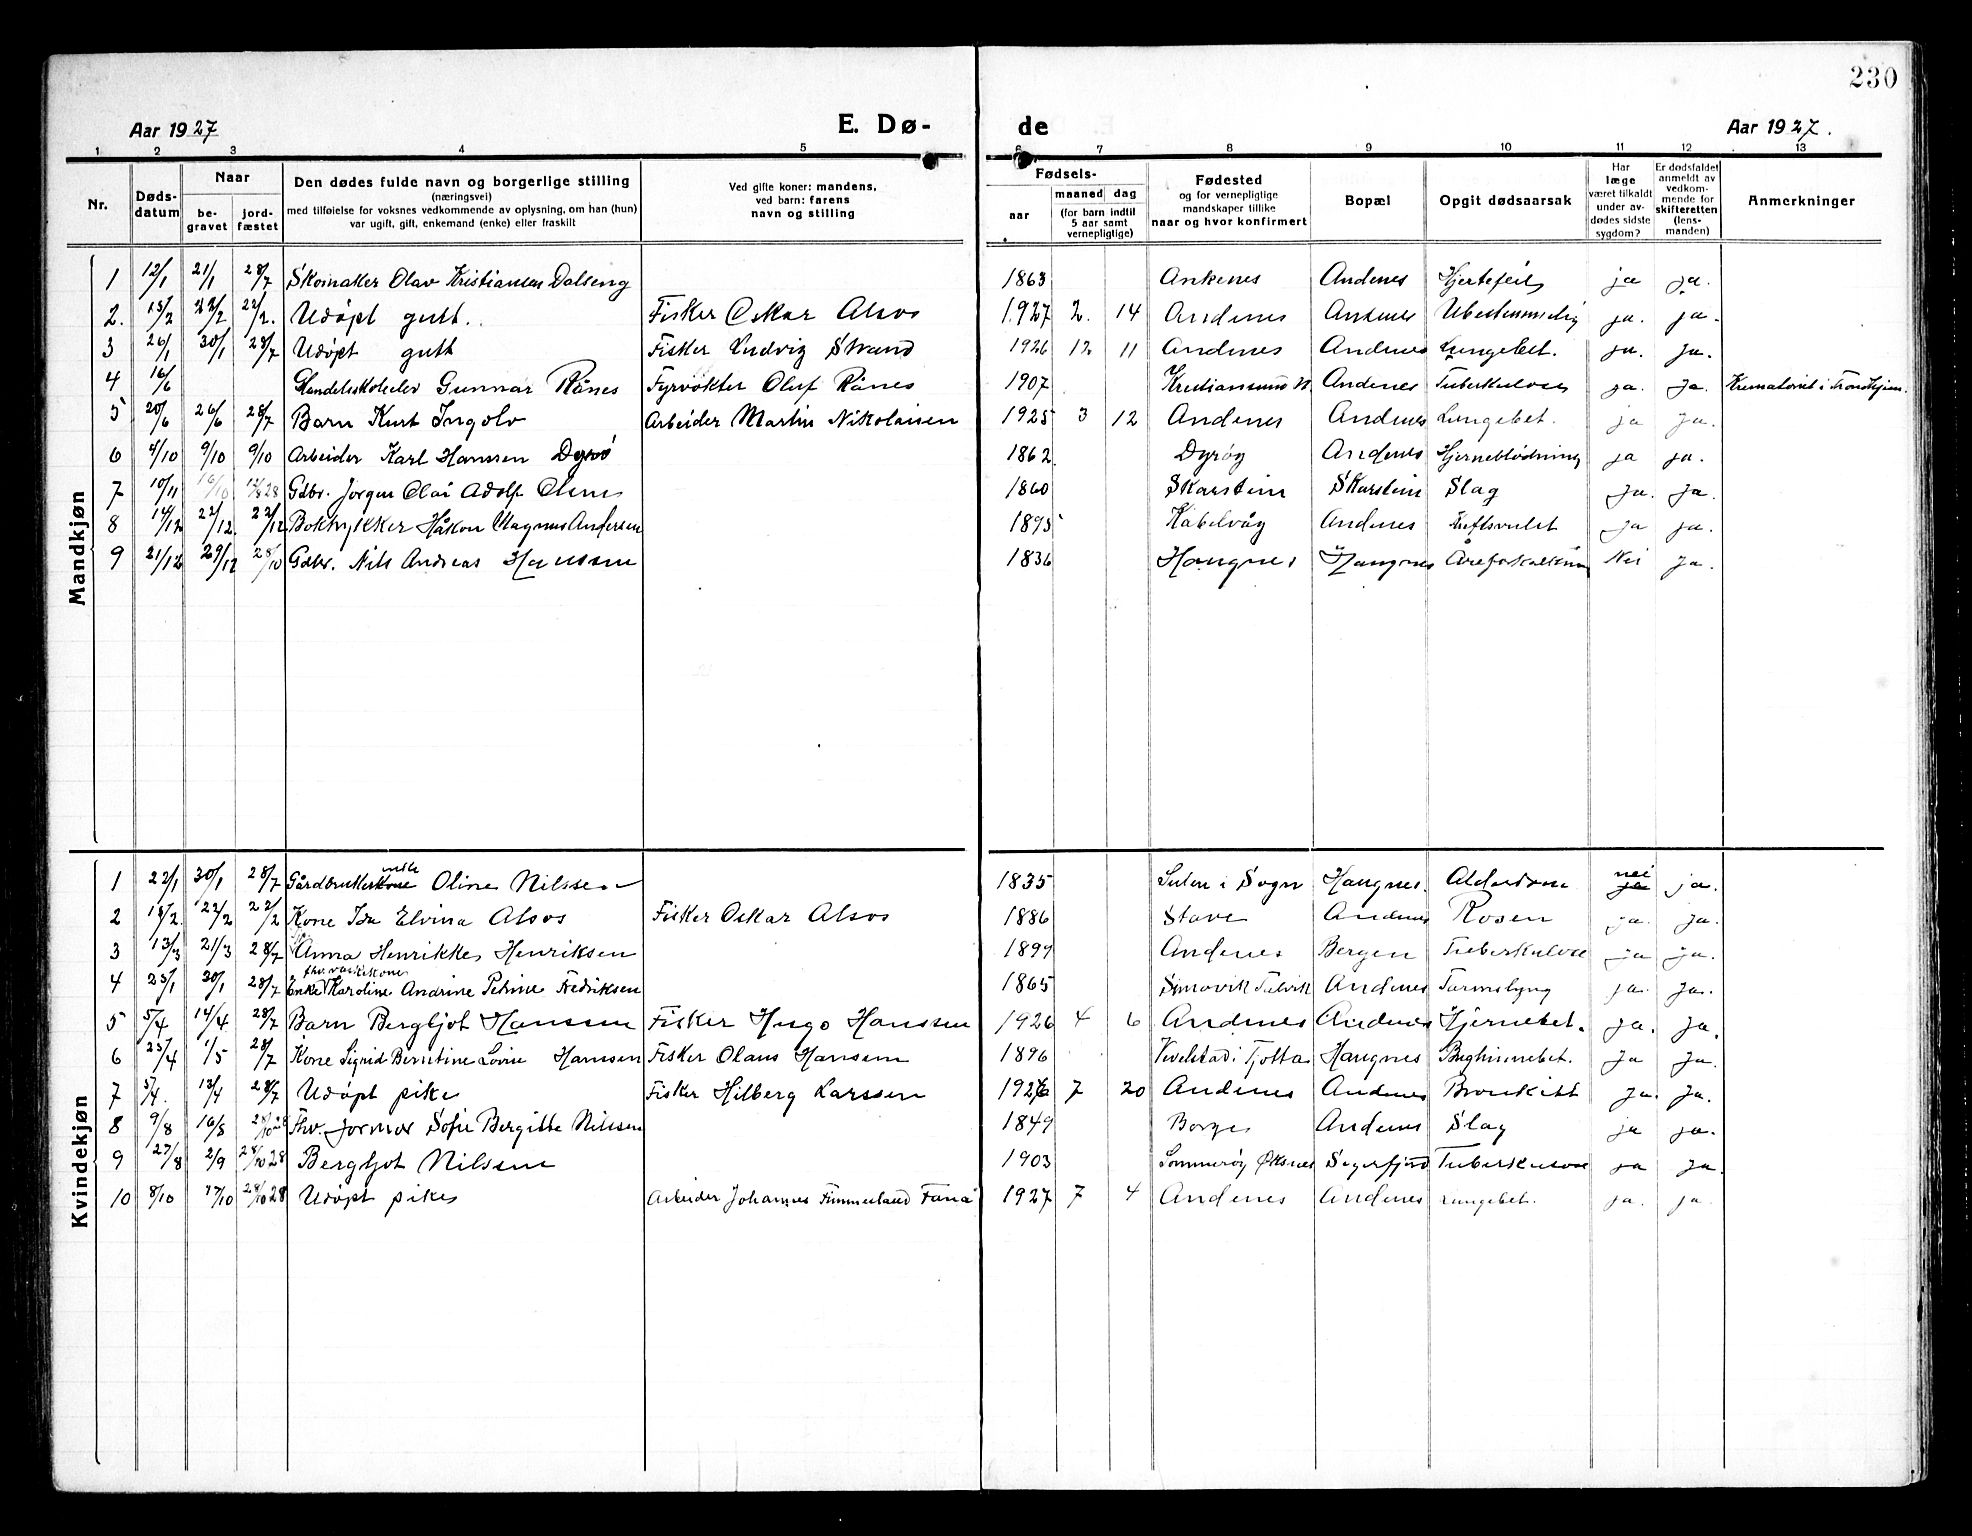 230
Aar 1927 E. Dø- de Aar 1927.
1 2 3 4 5 6 7 8 9 10 11 12 13
Nr. Døds-datum Naar be-gravet jord-fæstet Den dødes fulde navn og borgerlige stilling (næringsvei) med tilføielse for voksnes vedkommende av oplysning, om han (hun) var ugift, gift, enkemand (enke) eller fraskilt Ved gifte koner: mandens, ved barn: farens navn og stilling Fødsels- aar maaned dag (for barn indtil 5 aar samt vernepligtige) Fødested og for vernepligtige mandskaper tillike naar og hvor konfirmert Bopæl Opgit dødsaarsak Har læge været tilkaldt under av-dødes sidste sygdom? Er dødsfaldet anmeldt av vedkom-mende for skifteretten (lens-manden) Anmerkninger
Mandkjøn
1 12/1 21/1 28/7 Skomaker Olav Kristiansen Dalseng 1863 Ankenes Andenes Hjertefeil ja ja.
2. 15/2 22/2 22/2. Udøpt gutt. Fisker Oskar Alsos 1927 2. 14 Andenes Andenes Ubestemmelig ja. ja.
3 26/1 30/1 28/7 Udøpt gutt Fisker Ludvig Strand 1926 12 11 Andenes Andenes Lungebet. ja. ja.
4 16/6 Handelsskoleelev Gunnar Rånes Fyrvokter Oluf Rånes 1907 Kristiansund N. Andenes Tuberkulose ja. ja. Krematoriet i Trondhjem.
5 20/6 26/6 28/7 Barn Kurt Ingolv Arbeider Martin Nikolaisen 1925 3 12 Andenes Andenes Lungebet. ja ja.
6 4/10 9/10 9/10 Arbeider Karl Hanssen Dyrø 1862. Dyrøy Andenes Hjerneblødning ja ja.
7 10/11 16/10 12/8 28 Gdbr. Jørgen Olai Adolf Olsen 1860 Skarstein Skarstein Slag ja. ja.
8 14/12 22/12. 22/12 Boktrykker Håkon Magnus Andersen 1895 Kabelvåg Andenes ja ja.
9 21/12 29/12 28/10 Gdbr. Nils Andreas Hanssen 1836 Haugnes Haugnes Åreforkalkning Nei ja.
Kvindekjøn
1 22/1 30/1 28/7 Gårdbrukerkone enke Oline Nilssen 1835 Sulen i Sogn Haugnes. Alderdom ja nei ja.
2 18/2 22/2 22/2 Kone Ida Elvina Alsos Fisker Oskar Alsos 1886 Stave Andenes Rosen ja. ja.
3 13/3 21/3 28/7 Anna Henrikke Henriksen 1899 Andenes Bergen Tuberkulose ja ja.
4 23/1 30/1 28/7 Enke fhv. vaskekone Karoline Andrine Petrine Fredriksen 1865 Andenes Tarmslyng ja. ja.
5 5/4 14/4 28/7 Barn Bergljot Hanssen Fisker Hugo Hanssen 1926 4 6 Andenes Andenes Hjernebet. ja. ja.
6 23/4 1/5 28/7 Kone Sigrid Berntine Lovise Hansen Fisker Olaus Hansen 1896 Vevelstad i Tjøtta Haugnes Bughinnebet. ja ja.
7 5/4. 13/4 28/7 Udøpt pike Fisker Hilberg Larssen 1926 7 20 Andenes Andenes Bronkitt ja. ja.
8 9/8 16/8 28/10 28 Fhv. Jormor Sofie Bergitte Nilssen 1849 Borge Andenes Slag ja ja.
9 27/8 2/9 28/10 28 Bergljot Nilsen 1903 Sommerøy Øksnes Sigerfjord Tuberkulose ja ja.
10 8/10 17/10 28/10 28 Udøpt pike Arbeider Johannes Fanå 1927 7 4 Andenes Andenes Lungebet. ja. ja.